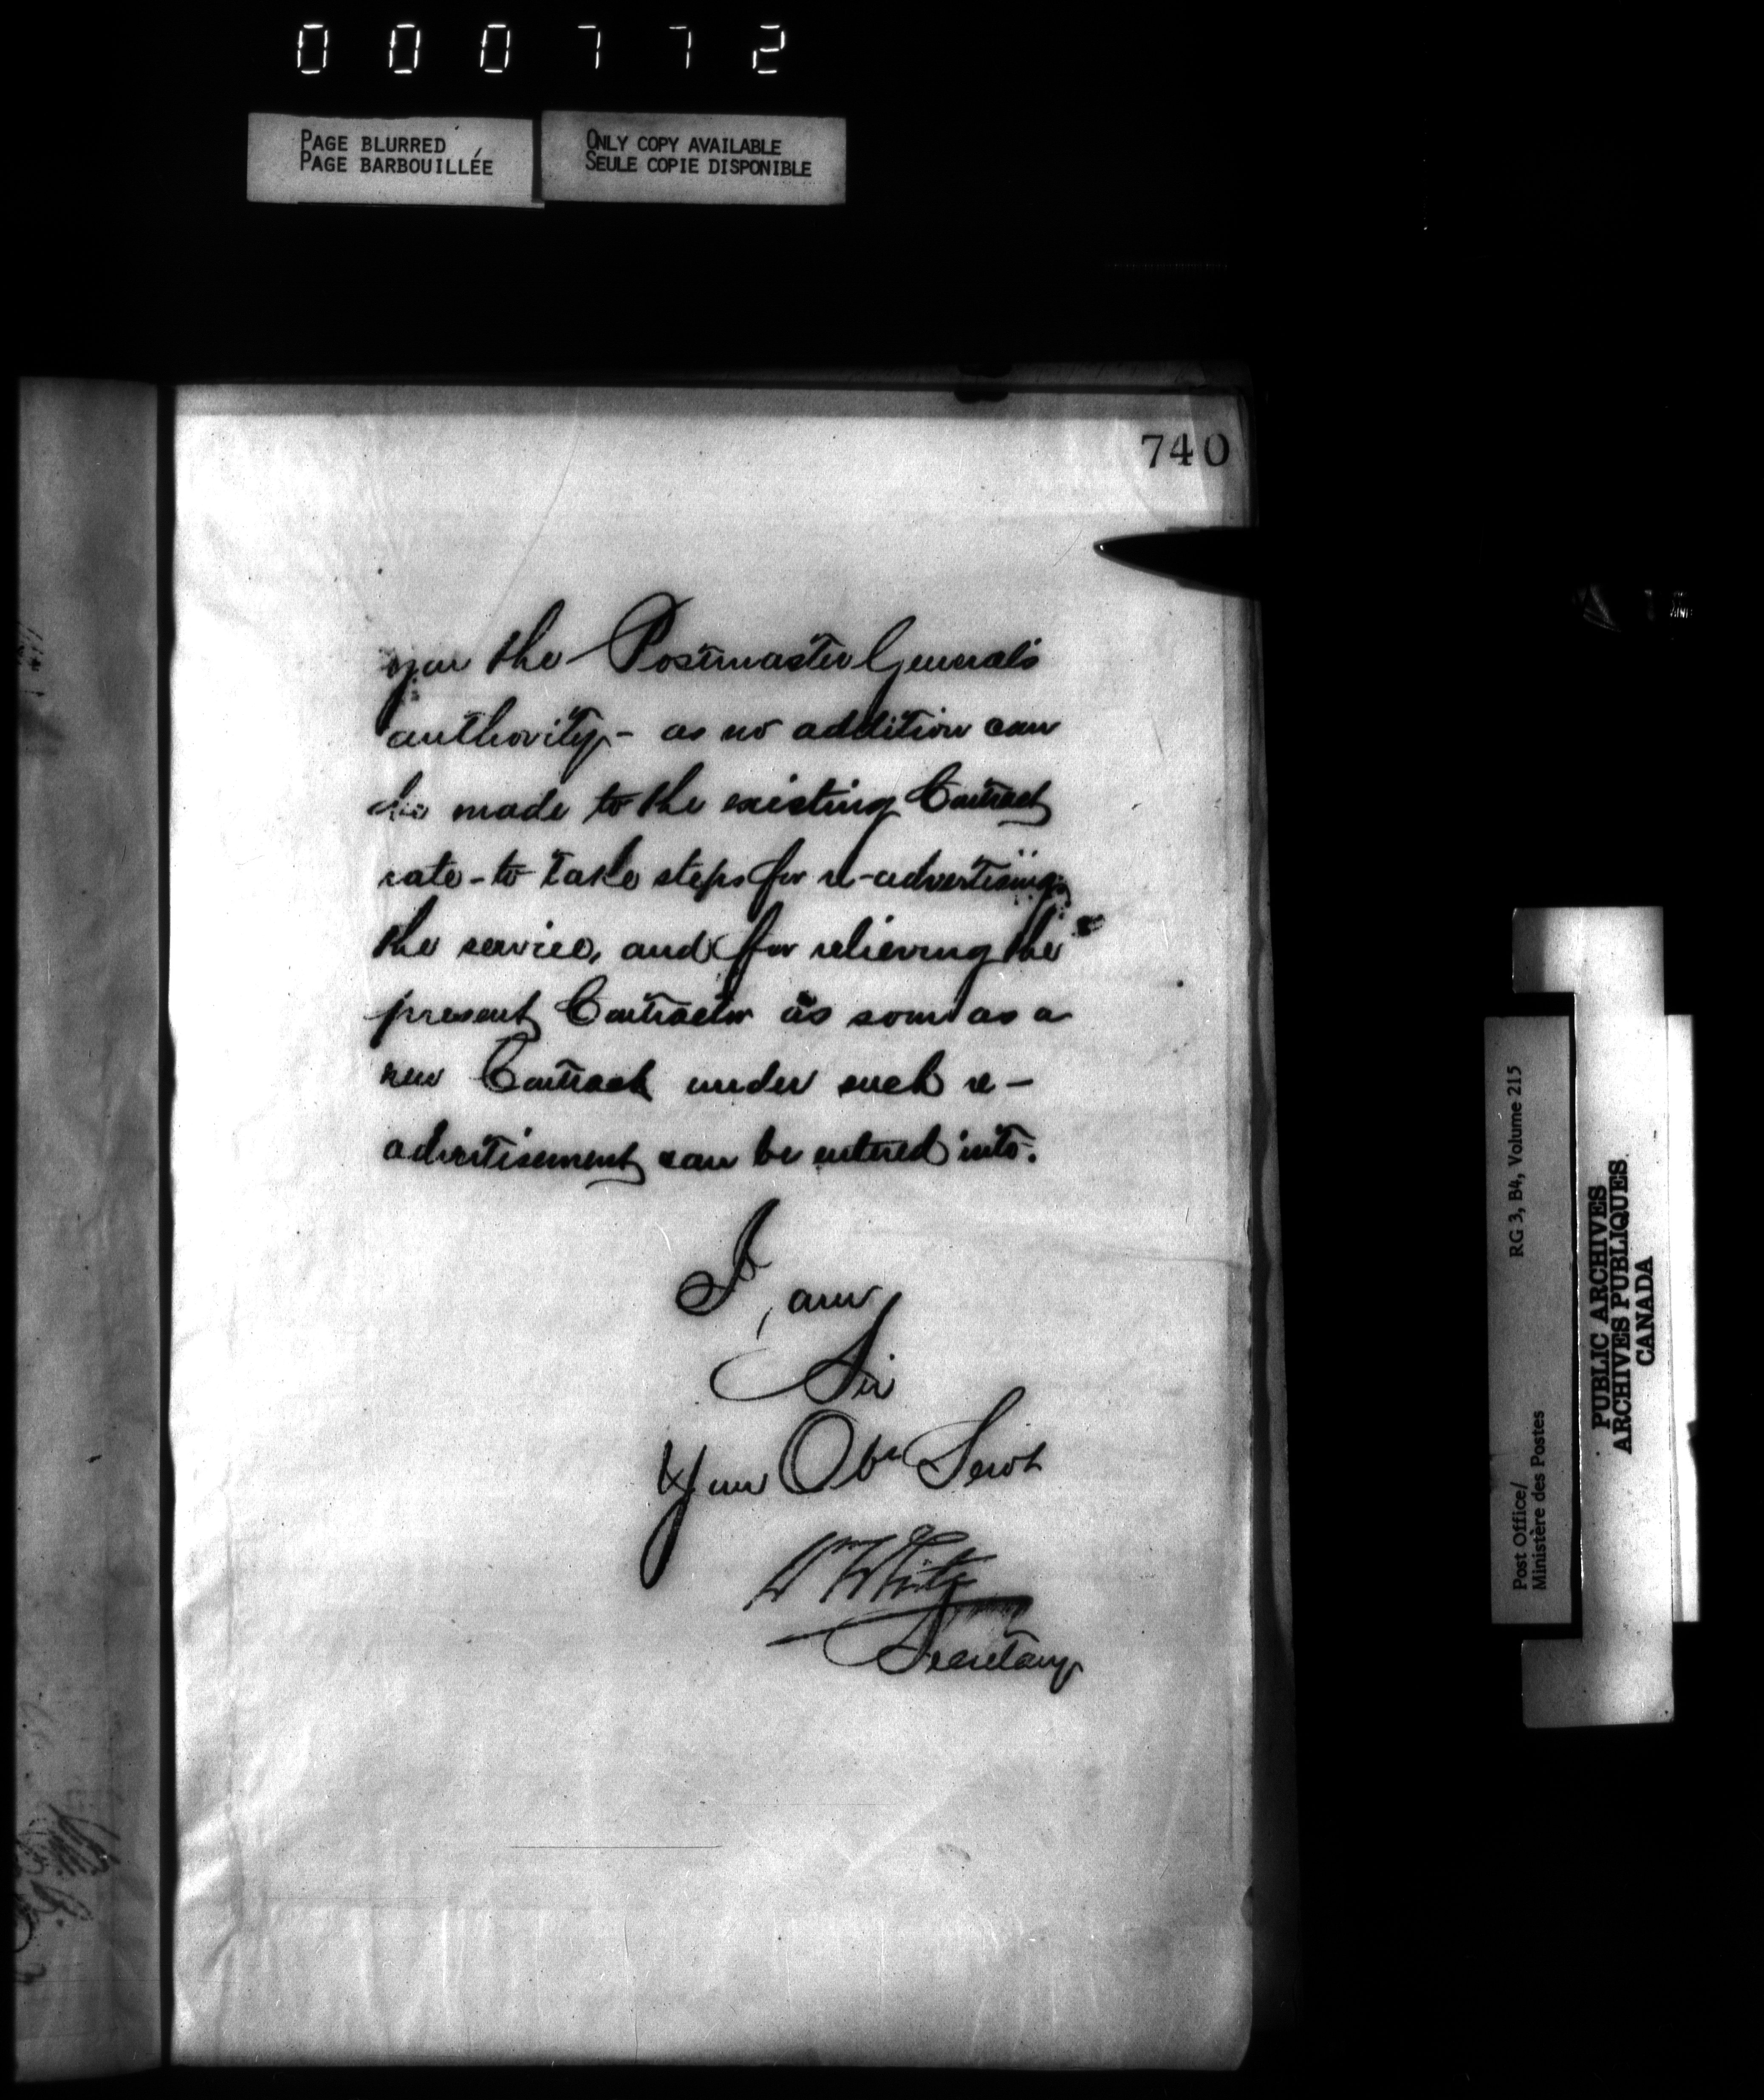 000772
PAGE BLURRED
PAGE BARBOUILLÉE
ONLY COPY AVAILABLE
SEULE COPIE DISPONIBLE
740
you the Postmaster General's
authority - as no addition can
be made to the existing Contract
rate - to take steps for re-advertising
the service, and for relieving the
present Contractor as soon as a
new Contract under such re-
advertisement can be entered into.
I am
Sir
Your Obt Servt
Wm White
Secretary
Post Office/
Ministère des Postes
RG 3, B4, Volume 215
PUBLIC ARCHIVES
ARCHIVES PUBLIQUES
CANADA